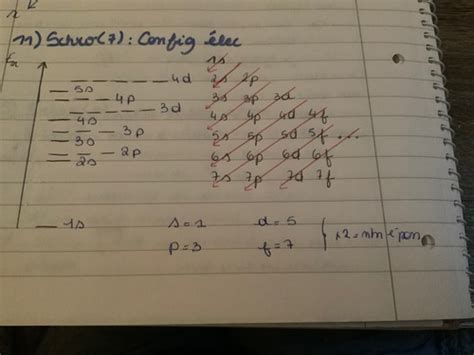 11) Schro(7): Config élec
1s
4d
2s 2p
5s
4p
3s 3p 3d
3d
4s
4s 4p 4d 4f
3p
5s 5p 5d 5f ...
3s
2p
6s 6p 6d 6f
2s
7s 7p 7d 7f
1s
s = 1 d = 5
p = 3 f = 7
x2 = nbr é pan